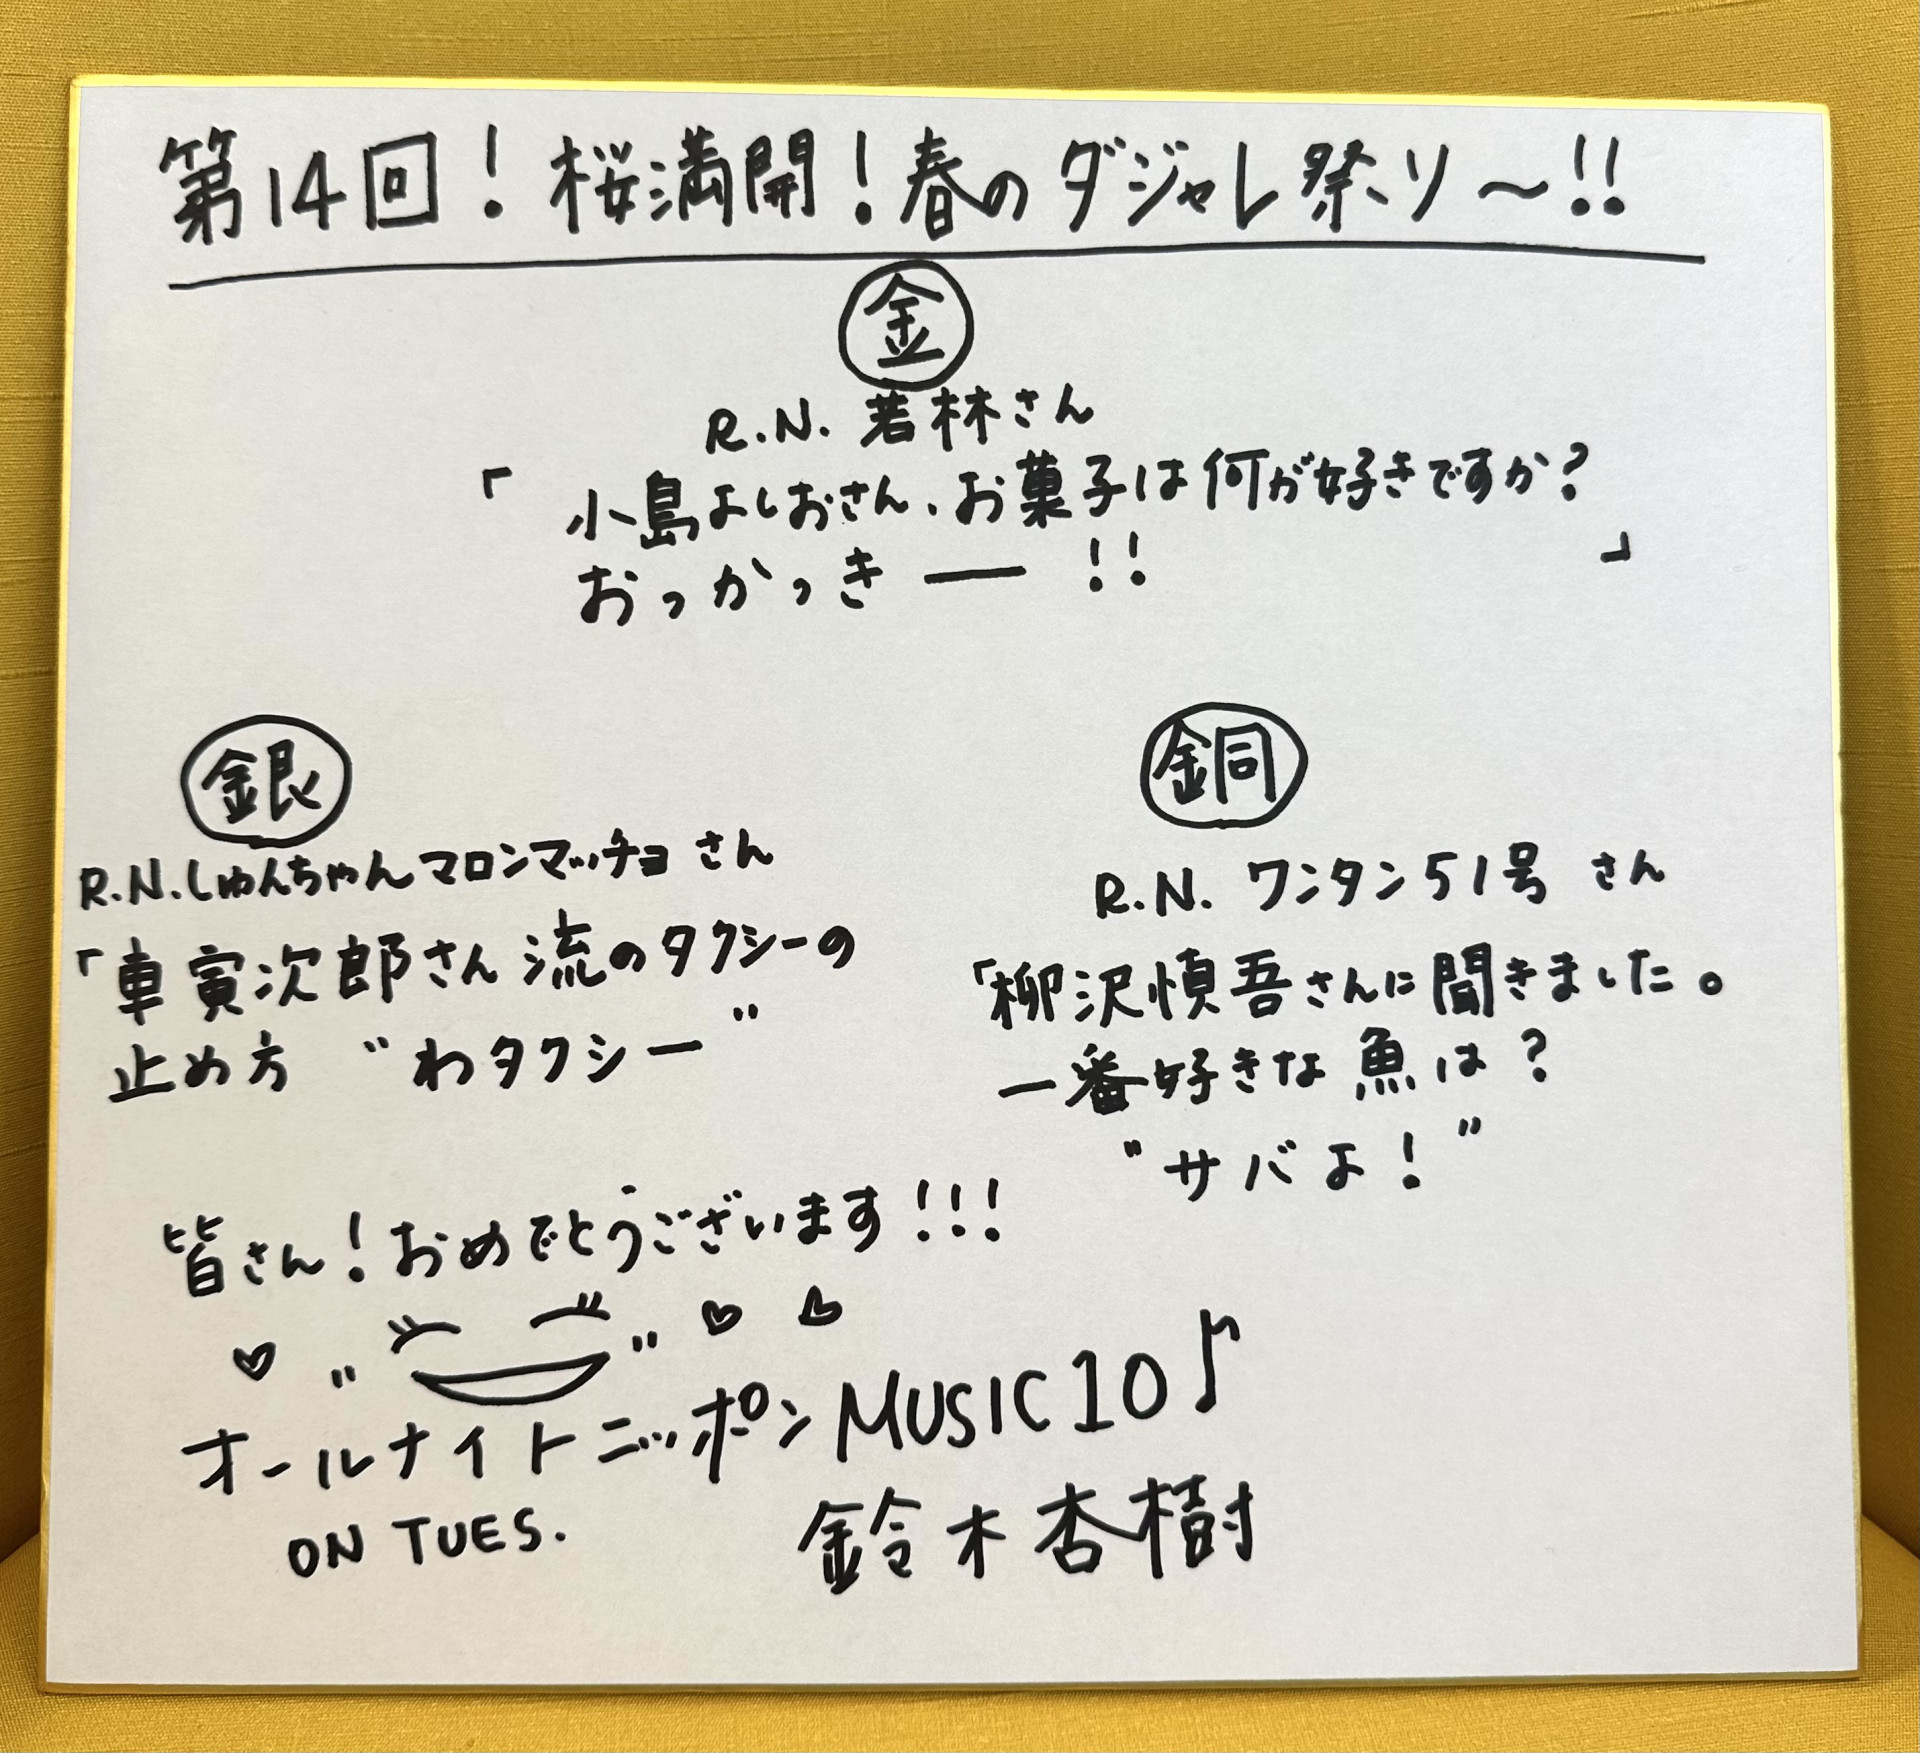 第14回！桜満開！春のダジャレ祭り〜!!
金
R.N. 若林さん
「小島よしおさん、お菓子は何が好きですか？
おっかっきー!!」
銀
R.N.しゅんちゃんマロンマッチョさん
「車寅次郎さん流のタクシーの
止め方 〝わタクシー〟
銅
R.N. ワンタン51号 さん
「柳沢慎吾さんに聞きました。
一番好きな魚は？
〝サバよ！〟
皆さん！おめでとうございます!!!
オールナイトニッポンMUSIC10♪
ON TUES.
鈴木杏樹